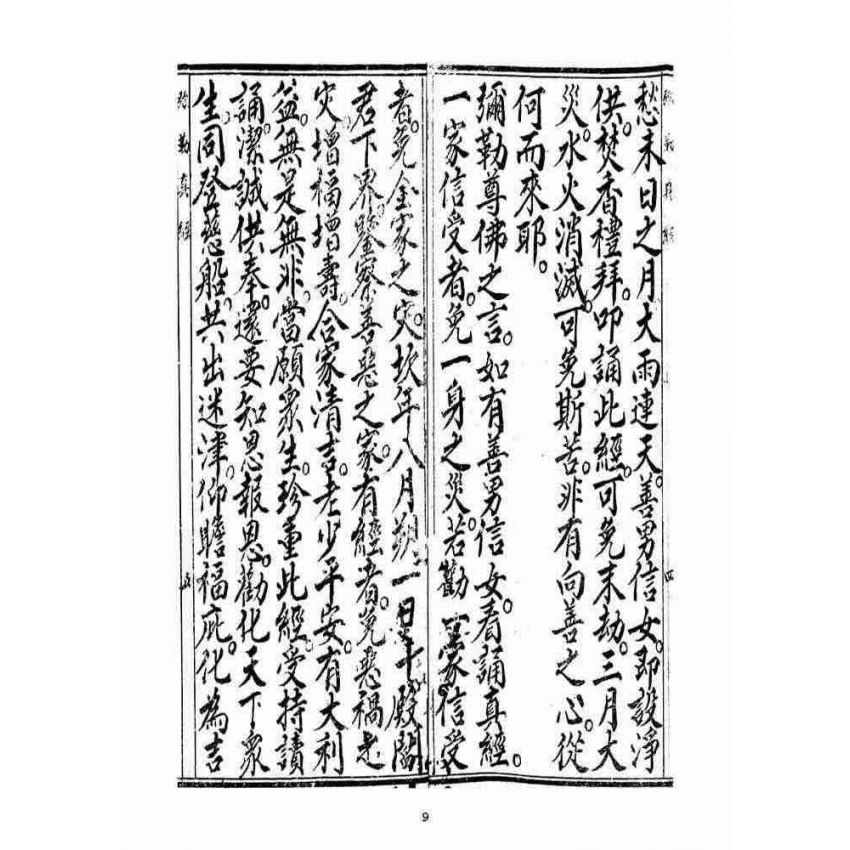 愁末日之月大雨連天。善男信女。即設淨
供。焚香禮拜。叩誦此經。可免末劫。三月大
災。水火消滅。可免斯苦。非有向善之心。從
何而來耶。
彌勒尊佛之言。如有善男信女。看誦真經。
一家信受者。免一身之災。若勸一家信受
者。免全家之灾。坎年八月朔一日。十殿閻
君下界。鑒察善惡之家。有經者。免惡禍走
灾。增福增壽。合家清吉。老少平安。有大利
益。無是無非。當願眾生。珍重此經。受持讀
誦。潔誠供奉。還要知恩報恩。勸化天下眾
生。同登慈船。共出迷津。仰瞻福庇。化為吉
彌勒真經
四
彌勒真經
五
9